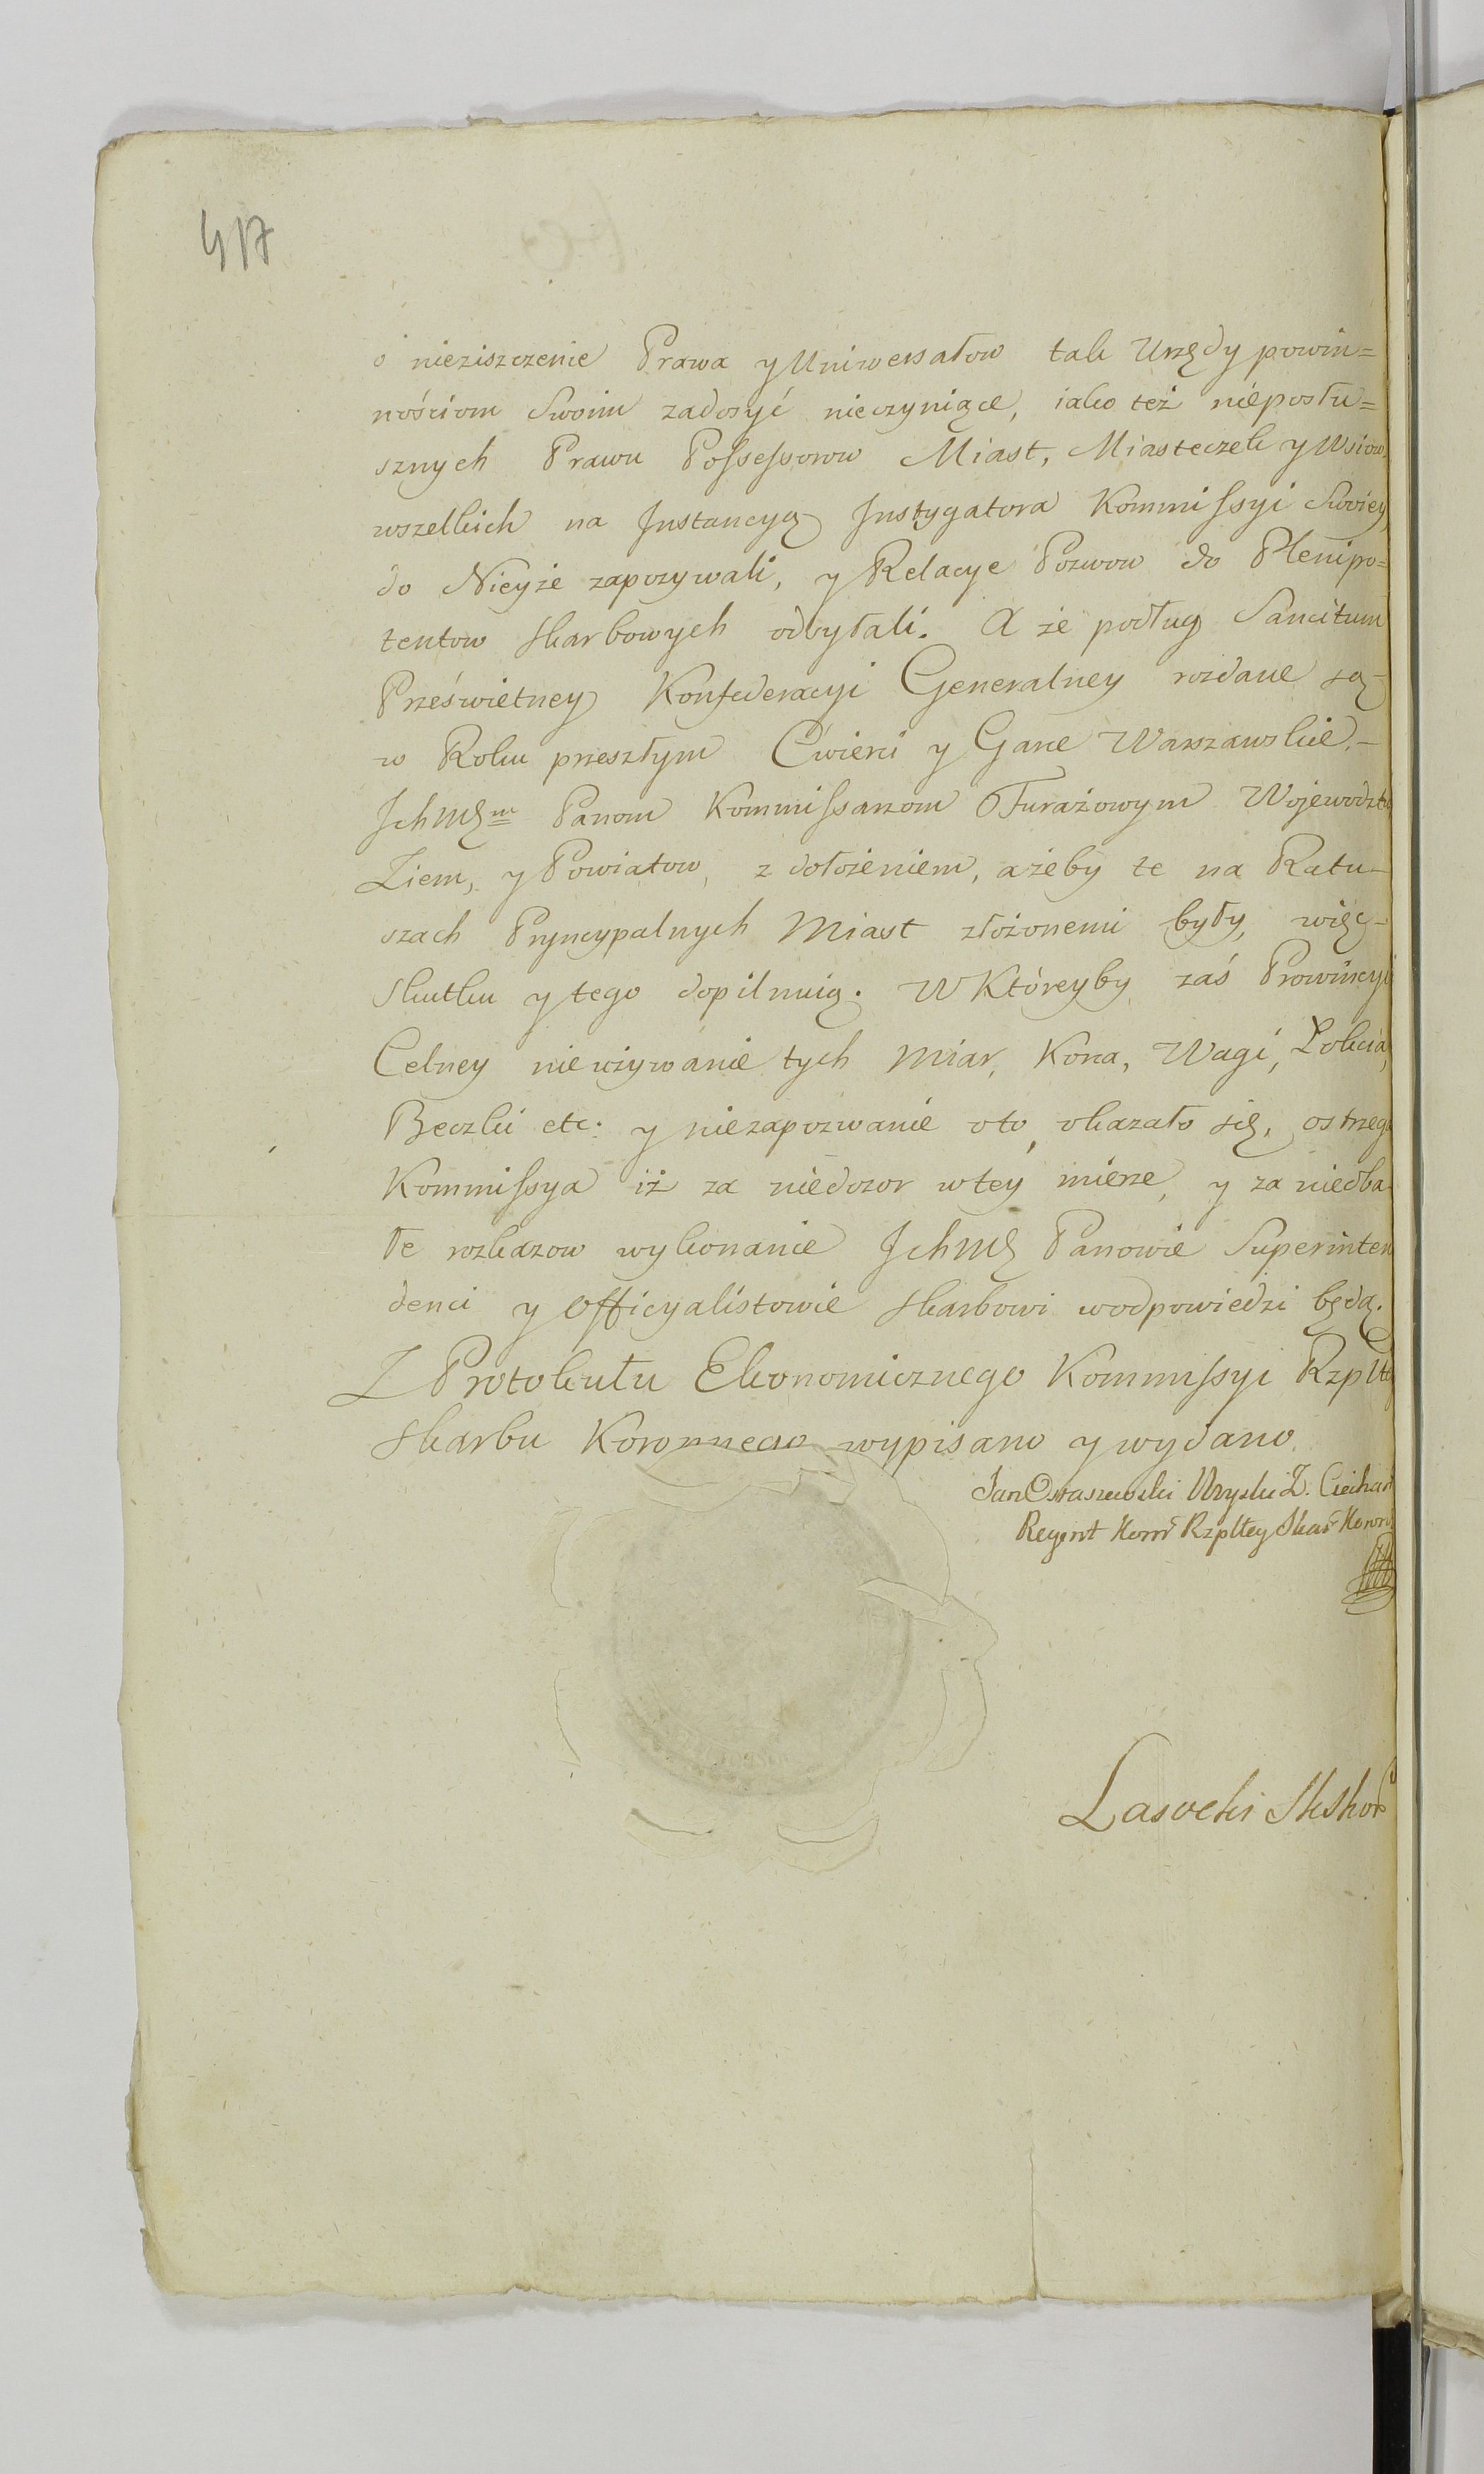 417
o nieziszczenie Prawa y Uniwersałow tak Urzędy powin=
nościom Swoim zadosyć nieczyniące, iako też nieposłu=
sznych Prawu Possessorow Miast, Miasteczek y Wsiow,
wszelkich na Instancyą Instygatora Kommissyi Swoiey,
do Nieyże zapozywali, y Relacye Pozwow do Plenipo=
tentow Skarbowych odsyłali. A że podług Sancitum
Prześwietney Konfederacyi Generalney rozdane są
w Roku przeszłym Cwierci y Garce Warszawskie,
Ichmęm Panom Kommissarzom Furażowym Wojewodztw
Ziem, y Powiatow, z dołożeniem, ażeby te na Ratu-
szach Pryncypalnych Miast złożonemi były, więc
Skutku y tego dopilnuią. W Któreyby zaś Prowincyi
Celney nieużywanie tych Miar, Korca, Wagi, Łokcia,
Beczki etc: y niezapozwanie oto, okazało się, ostrzega
Kommissya iż za niedozor wtey mierze, y za niedba
łe rozkazow wykonanie Ichmę Panowie Superinten
denci y Officyalistowie Skarbowi wodpowiedzi będą.
Z Protokułu Ekonomicznego Kommissyi Rzpltey
Skarbu Koronnego wypisano y wydano
Jan Ostaszewski Z. Ciechan
Regent Kom Rzpltey Skar Koron
Lasocki